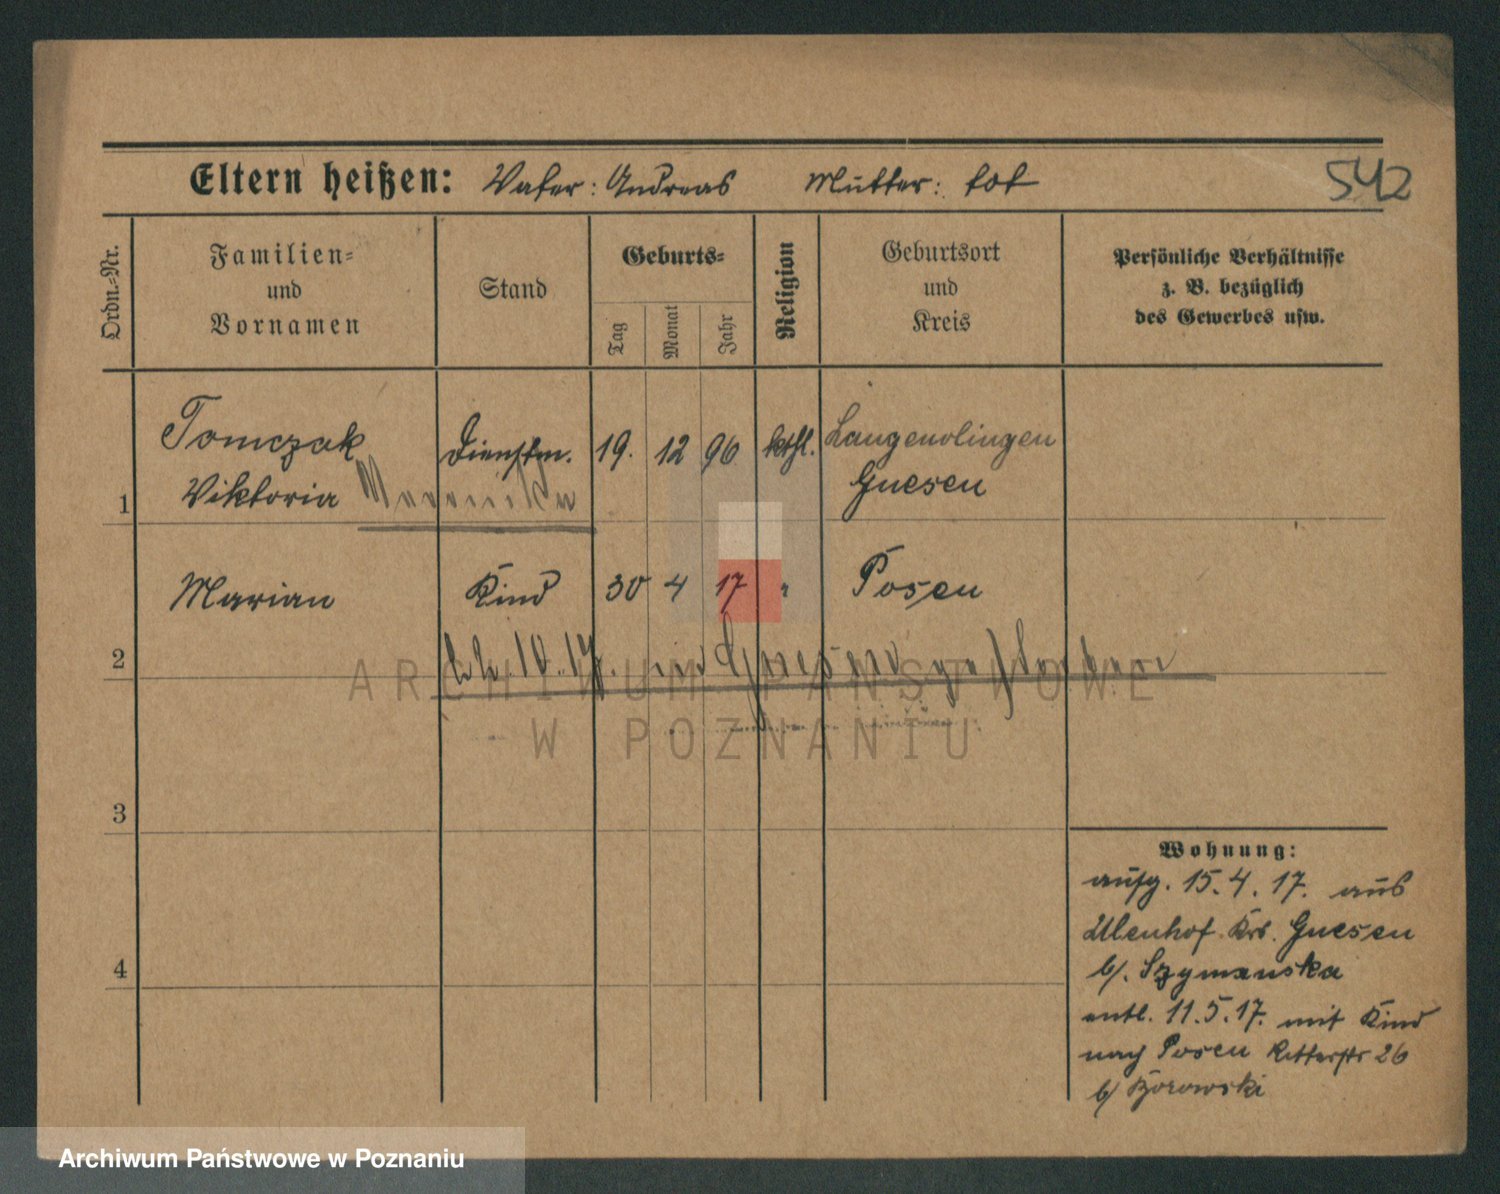 Eltern heißen: Vater: Andreas Mutter: tot
542
Ordn.-Nr.
Familien-
und
Vornamen
Stand
Geburts-
Tag
Monat
Jahr
Religion
Geburtsort
und
Kreis
Persönliche Verhältnisse
z. B. bezüglich
des Gewerbes usw.
Tomczak Dienstm. 19. 12 96 kthl. Langenolingen
1 Viktoria Gnesen
Marian Kind 30 4 17 " Posen
2 10.17. in Gnesen gestorben
ARCHIWUM PAŃSTWOWE
W POZNANIU
3
4
Wohnung:
aufg. 15.4.17. aus
Ulenhof Krs. Gnesen
b/. Szymanska
entl. 11.5.17. mit Kind
nach Posen Ritterstr 26
b/
Archiwum Państwowe w Poznaniu